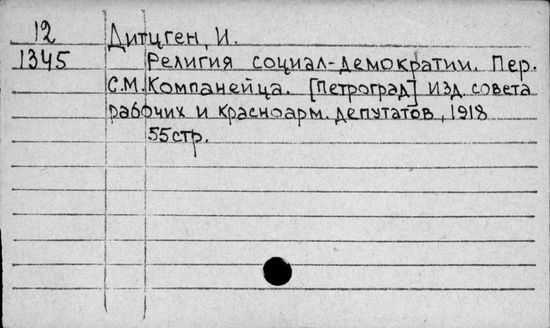 12 Дитцген, И.
1345 Религия социал-демократии. Пер.
С.М. Компанейца. [Петроград] изд. совета
рабочих и красноарм. депутатов, 1918
55стр.